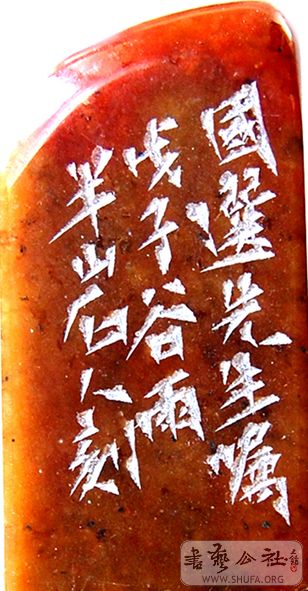 國選先生嘱
戊子谷雨
半山石人刻
書藝公社
WWW.SHUFA.ORG